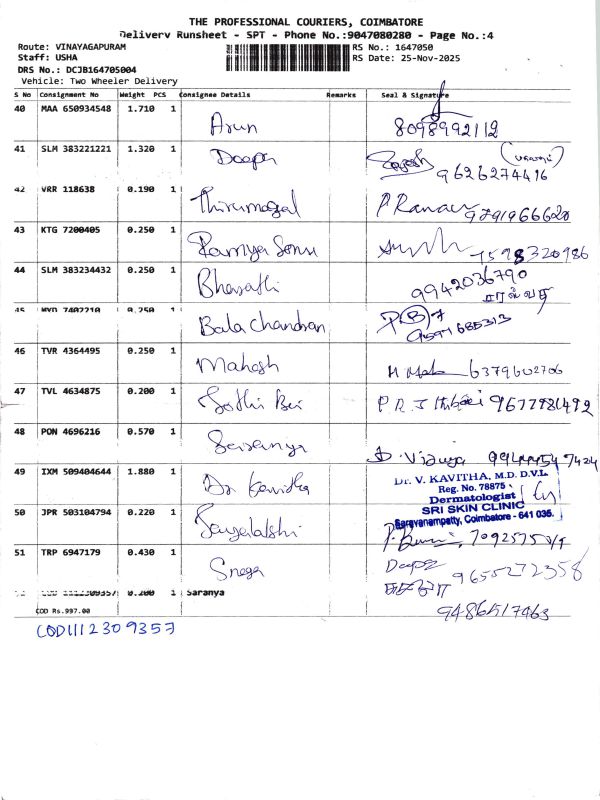 THE PROFESSIONAL COURIERS, COIMBATORE
Delivery Runsheet - SPT - Phone No.:9047080280 - Page No.:4
Route: VINAYAGAPURAM
Staff: USHA
DRS No.: DCJB164705004
Vehicle: Two Wheeler Delivery
RS No.: 1647050
RS Date: 25-Nov-2025
S No Consignment No Weight PCS Consignee Details Remarks Seal & Signature
40 MAA 650934548 1.710 1 Arun 8098992112
41 SLM 383221221 1.320 1 Deepa 9626274416
42 VRR 118638 0.190 1 Thirumagal 9791966620
43 KTG 7200405 0.250 1 Ramya Sonu 7598320986
44 SLM 383234432 0.250 1 Bharathi 9942036790
45 7402210 0.250 1 Bala Chandran 9597685313
46 TVR 4364495 0.250 1 Mahesh 6379602706
47 TVL 4634875 0.200 1 Jothi Bai 9677981492
48 PON 4696216 0.570 1 Saranya
49 IXM 509404644 1.880 1 Dr Kavitha
Dr. V. KAVITHA, M.D. D.V.L.
Reg. No. 78875
Dermatologist
SRI SKIN CLINIC
Saravanampatty, Coimbatore - 641 035.
50 JPR 503104794 0.220 1
51 TRP 6947179 0.430 1 Snega Deepa 9655272358
0.200 1 Saranya 9486517463
COD Rs.997.00
COD1112309357